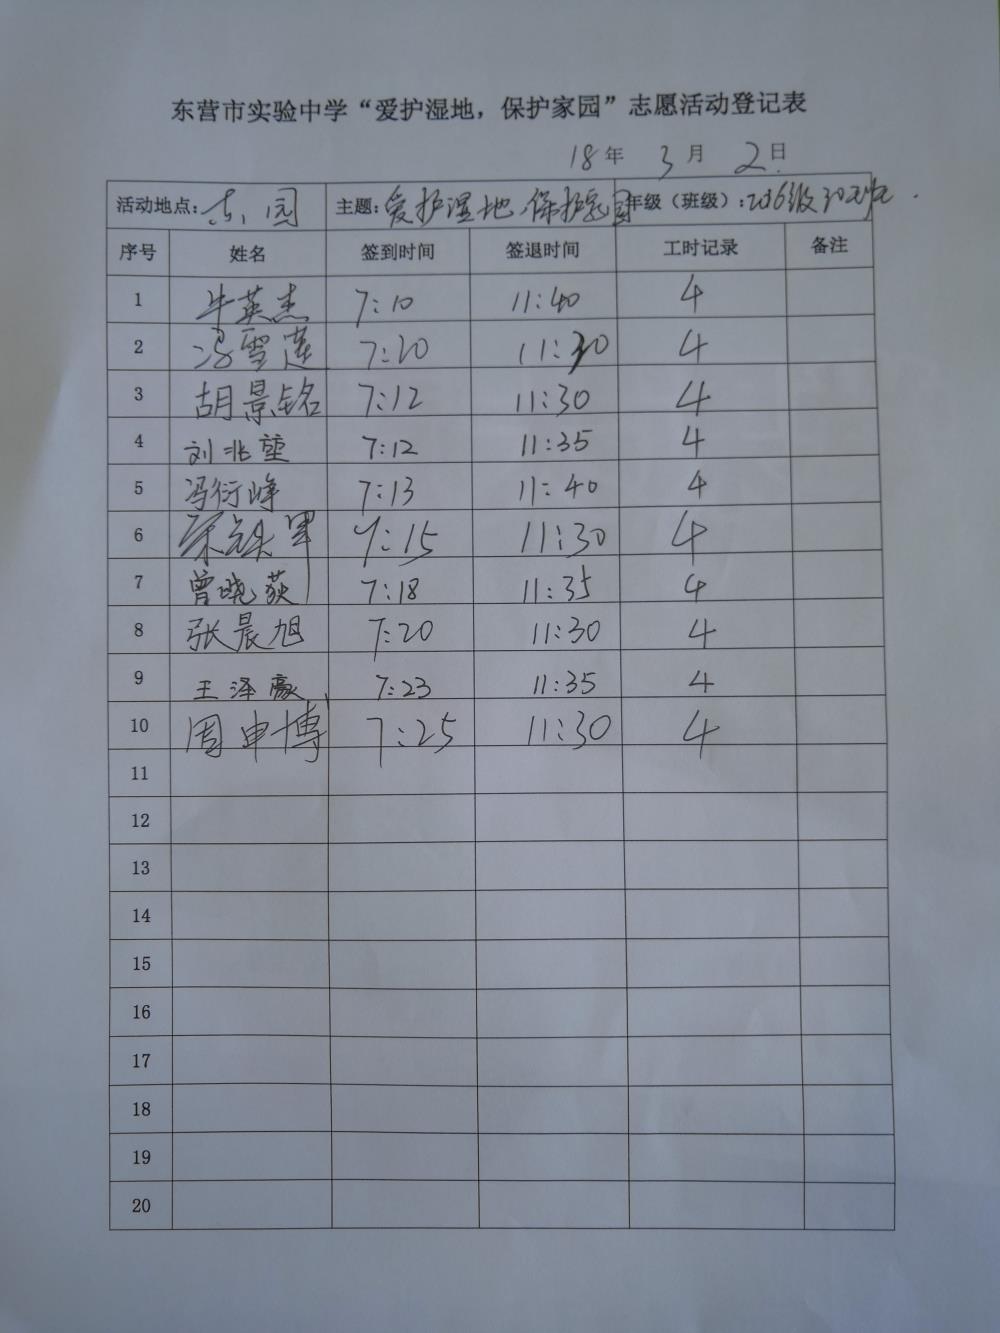 东营市实验中学“爱护湿地，保护家园”志愿活动登记表
18年 3月 2日
活动地点: 园 主题: 爱护湿地 保护家园 年级（班级）: 2016级
序号 姓名 签到时间 签退时间 工时记录 备注
1 牛英杰 7:10 11:40 4
2 冯雪莲 7:20 11:30 4
3 胡景铭 7:12 11:30 4
4 刘兆堃 7:12 11:35 4
5 冯衍峰 7:13 11:40 4
6 7:15 11:30 4
7 曾晓荻 7:18 11:35 4
8 张晨旭 7:20 11:30 4
9 王泽豪 7:23 11:35 4
10 周申博 7:25 11:30 4
11
12
13
14
15
16
17
18
19
20